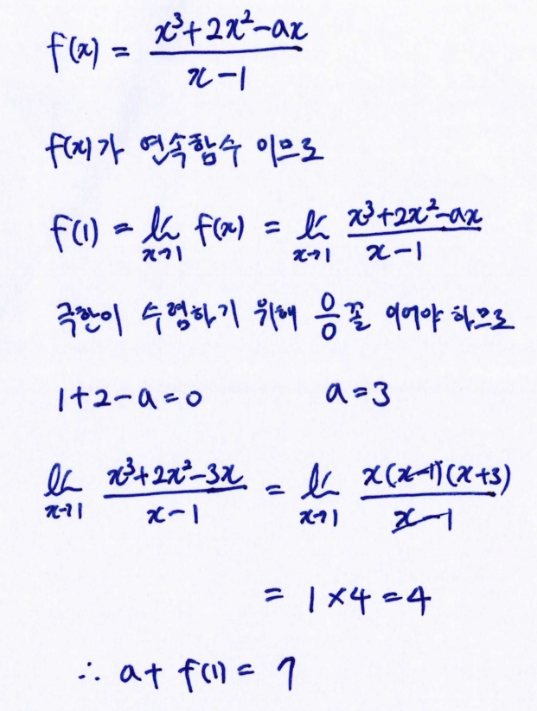 f(x) = (x³+2x²-ax)/(x-1)
f(x)가 연속함수 이므로
f(1) = lim_{x→1} f(x) = lim_{x→1} (x³+2x²-ax)/(x-1)
극한이 수렴하기 위해 0/0 꼴 이어야 하므로
1+2-a=0 a=3
lim_{x→1} (x³+2x²-3x)/(x-1) = lim_{x→1} x(x-1)(x+3)/(x-1)
= 1×4=4
∴ a+f(1)= 7